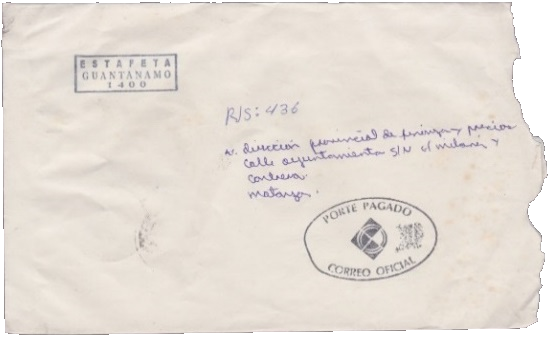 ESTAFETA
GUANTÁNAMO
1400
R/S: 436
A. dirección provincial de finanzas y precios
Calle ayuntamiento S/N e/ milanes y
Contreras
matanzas.
PORTE PAGADO
CORREO OFICIAL